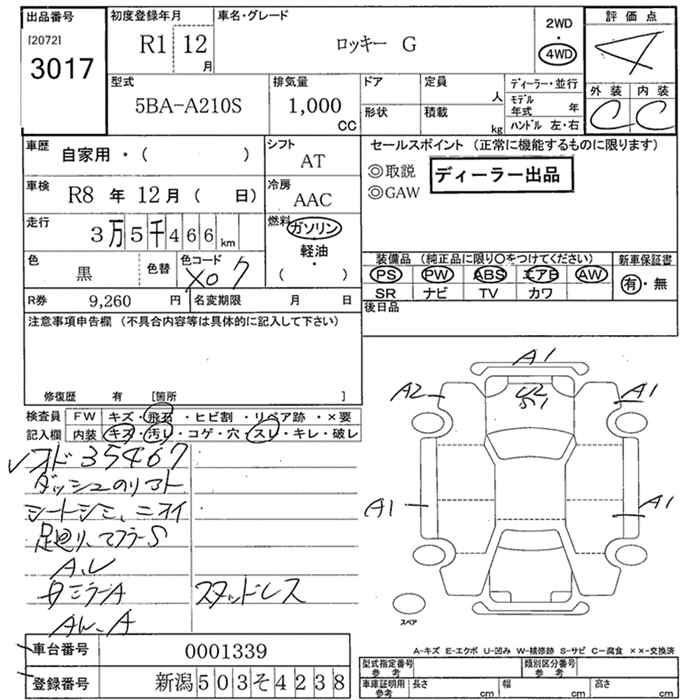 出品番号
[2072]
3017
初度登録年月
R1 12 月
車名・グレード
ロッキー G
2WD
4WD
評価点
4
外装 内装
C C
型式
5BA-A210S
排気量
1,000 CC
ドア
形状
定員 人
積載 kg
ディーラー・並行
モデル年式 年
ハンドル 左・右
車歴 自家用・( )
車検 R8 年 12 月 ( 日)
走行 3万5千466km
色 黒 色替
色コード X07
シフト AT
冷房 AAC
燃料 ガソリン
軽油・
( )
セールスポイント (正常に機能するものに限ります)
◎取説
◎GAW
ディーラー出品
装備品 (純正品に限り〇をつけてください)
新車保証書
PS PW ABS エアB AW
有・無
SR ナビ TV カワ
R券 9,260 円
名変期限 月 日
後日品
注意事項申告欄 (不具合内容等は具体的に記入して下さい)
修復歴 有 [箇所 ]
検査員記入欄
FW キズ・飛石・ヒビ割・リペア跡・×要
内装 キズ・汚レ・コゲ・穴・スレ・キレ・破レ
オド35467
ダッシュのリコト
シートシミ、ニオイ
足廻り、マフラーS
A,U
タミラーA
スタッドレス
AW-A
A1
A2
U2
A1
A1
A1
スペア
A-キズ E-エクボ U-凹み W-補修跡 S-サビ C-腐食 ××-交換済
車台番号 0001339
登録番号 新潟503そ4238
型式指定番号 参考
類別区分番号 参考
車庫証明用 参考
長さ cm
幅 cm
高さ cm